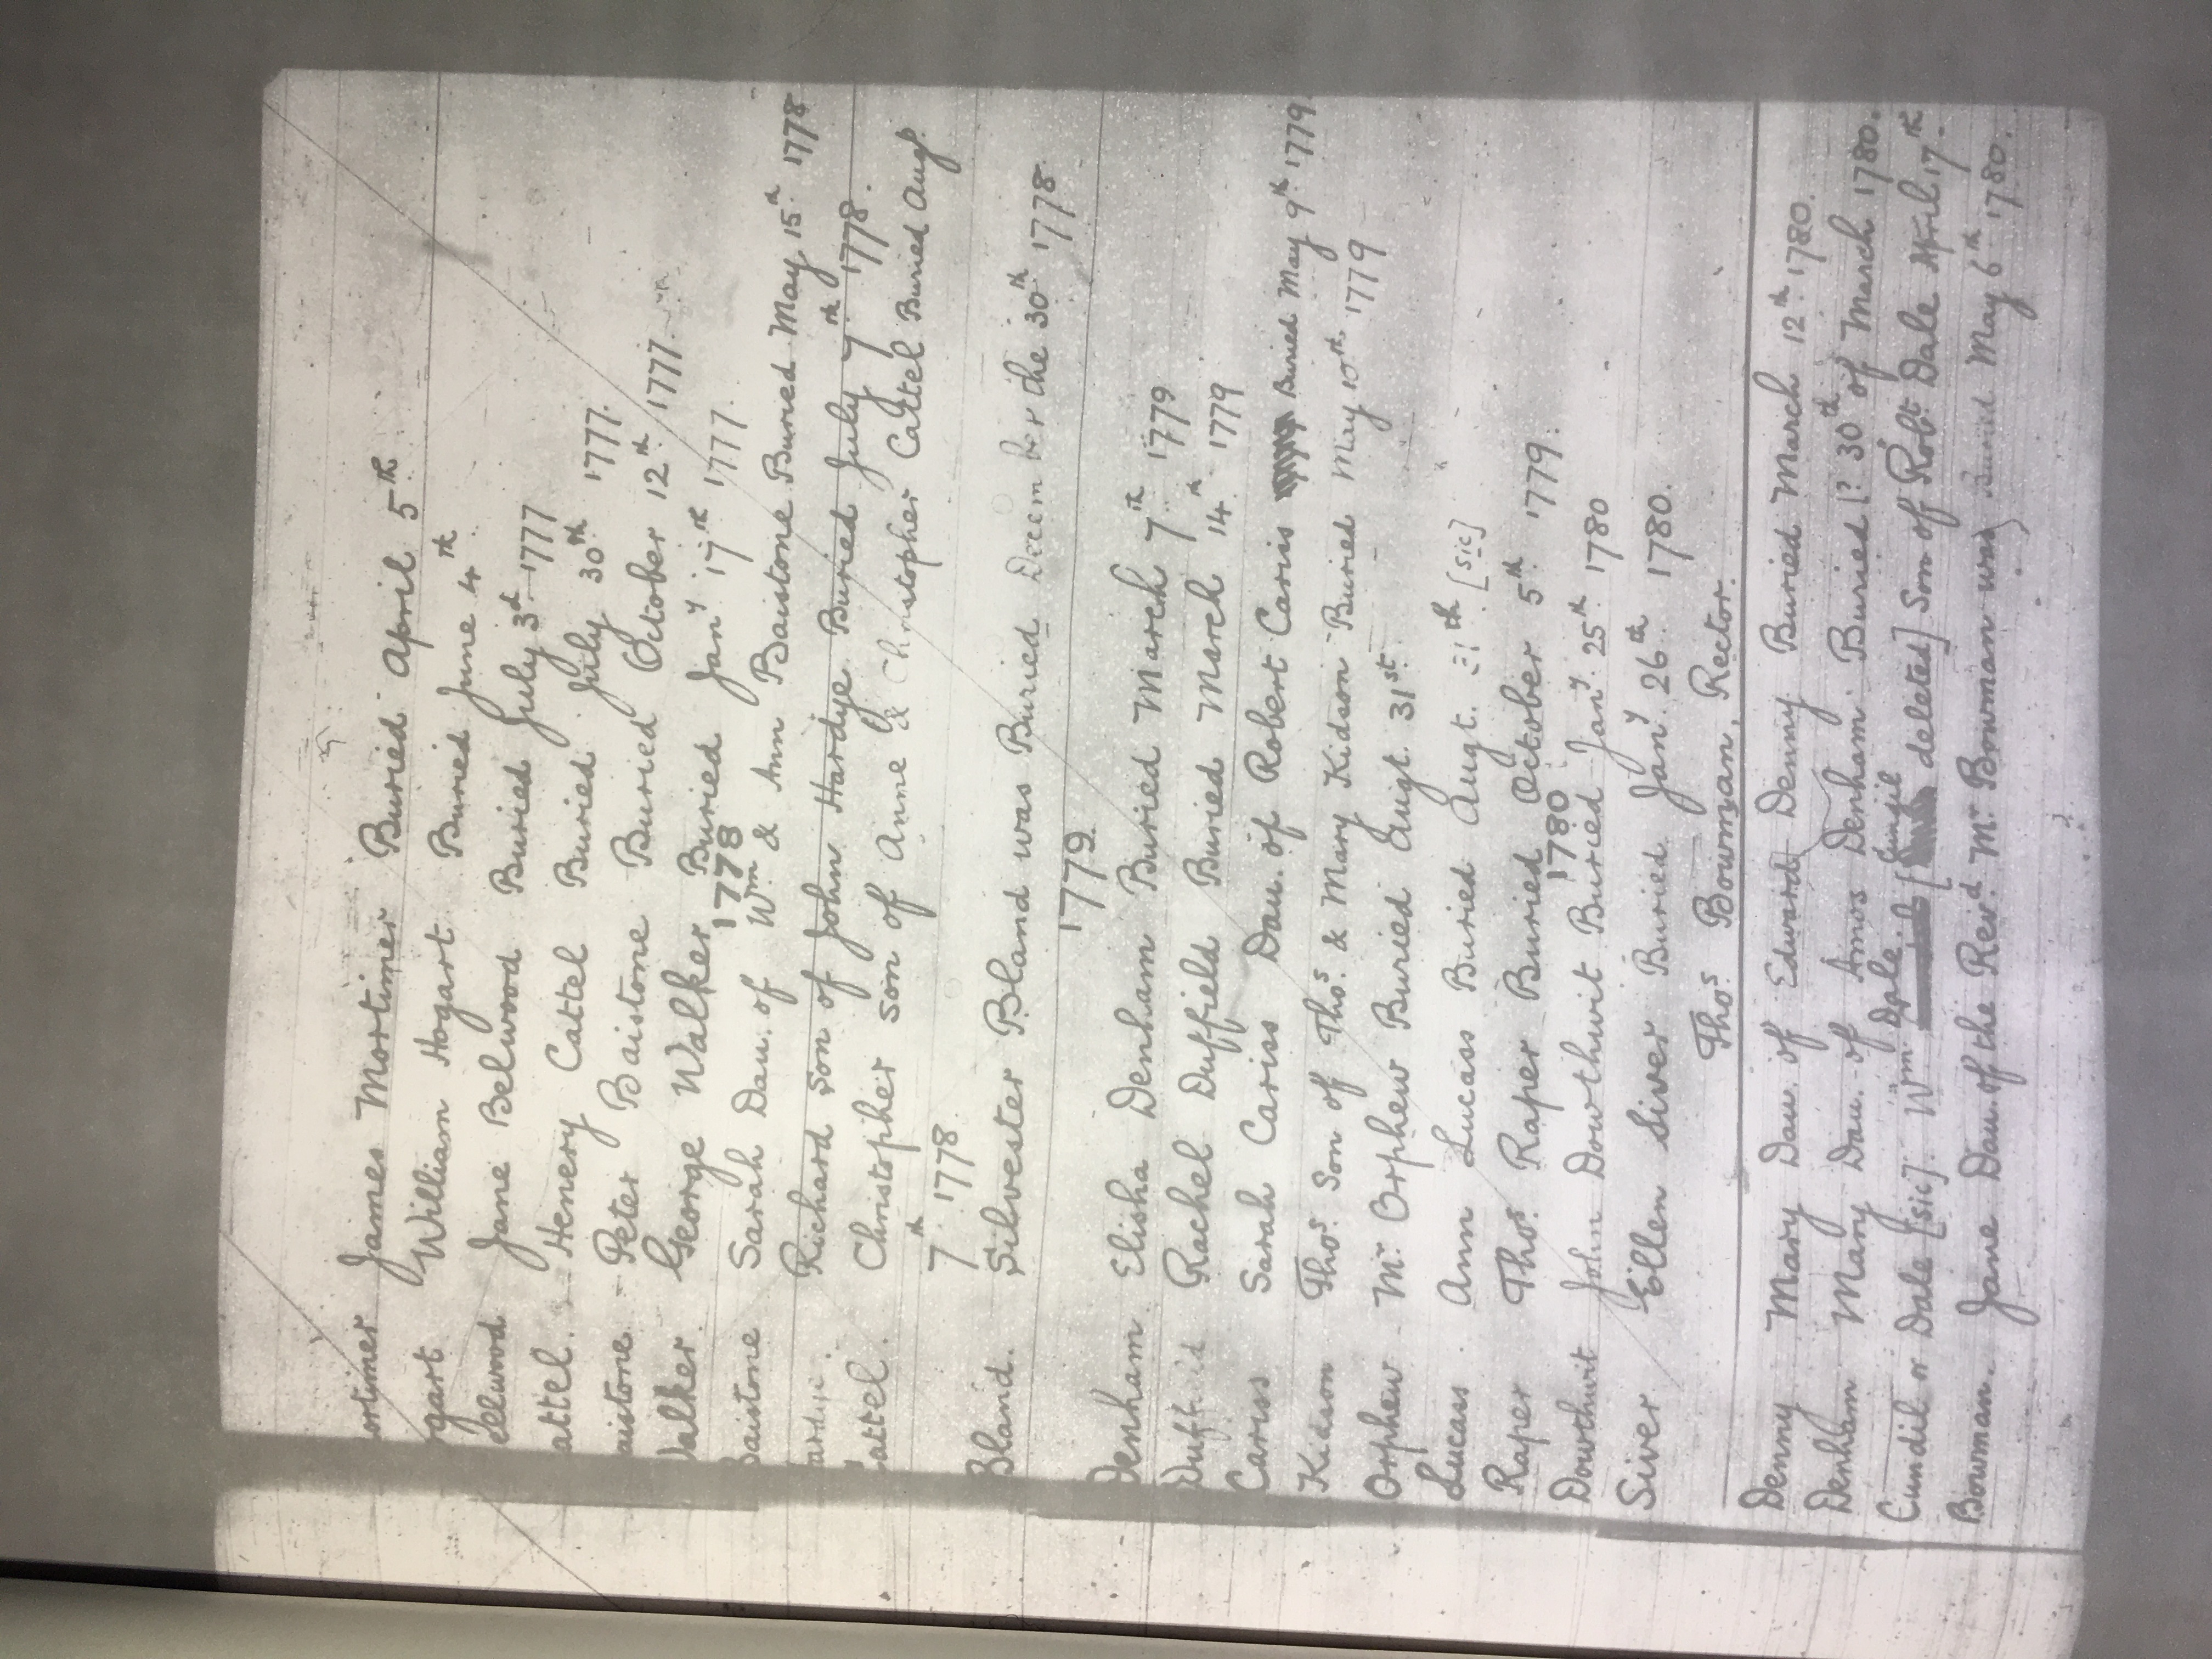 ortimer James Mortimer Buried April 5th
ogart William Hogart Buried June 4th
elwood Jane Belwood Buried July 3d 1777
attel. Henery Cattel Buried July 30th 1777.
aistone Peter Baistone Buried October 12th 1777
Walker George Walker Buried Jany 17th 1777
1778
Baistone Sarah Dau. of Wm & Ann Baistone Buried May 15th 1778
ardye. Richard Son of John Hardye Buried July 7th 1778.
Cattel. Christopher son of Anne & Christopher Cattel Buried Augt
7th 1778
Bland. Silvester Bland was Buried December the 30th 1778
1779
Denham Elisha Denham Buried March 7th 1779
Duffield Rachel Duffield Buried March 14th 1779
Cariss Sarah Cariss Dau. of Robert Cariss Buried May 9th 1779
Kidson Thos. Son of Thos. & Mary Kidson Buried May 10th 1779
Orphew Mr Orphew Buried Augt. 31st
Lucass Ann Lucass Buried Augt. 31th [sic]
Raper Thos. Raper Buried October 5th 1779.
1780
Dowthwit John Dowthwit Buried Jany. 25th 1780
Siver Ellen Siver Buried Jany. 26th 1780.
Thos Bowman, Rector.
Denny Mary Dau. of Edward Denny Buried March 12th 1780.
Denham Mary Dau. of Amos Denham. Buried [? 30th of March 1780.
Cundil or Dale [sic]. Wm Dale. [Cundil deleted] Son of Robt Dale April 17th
Bowman. Jane Dau. of the Revd. Mr Bowman was Buried May 6th 1780.